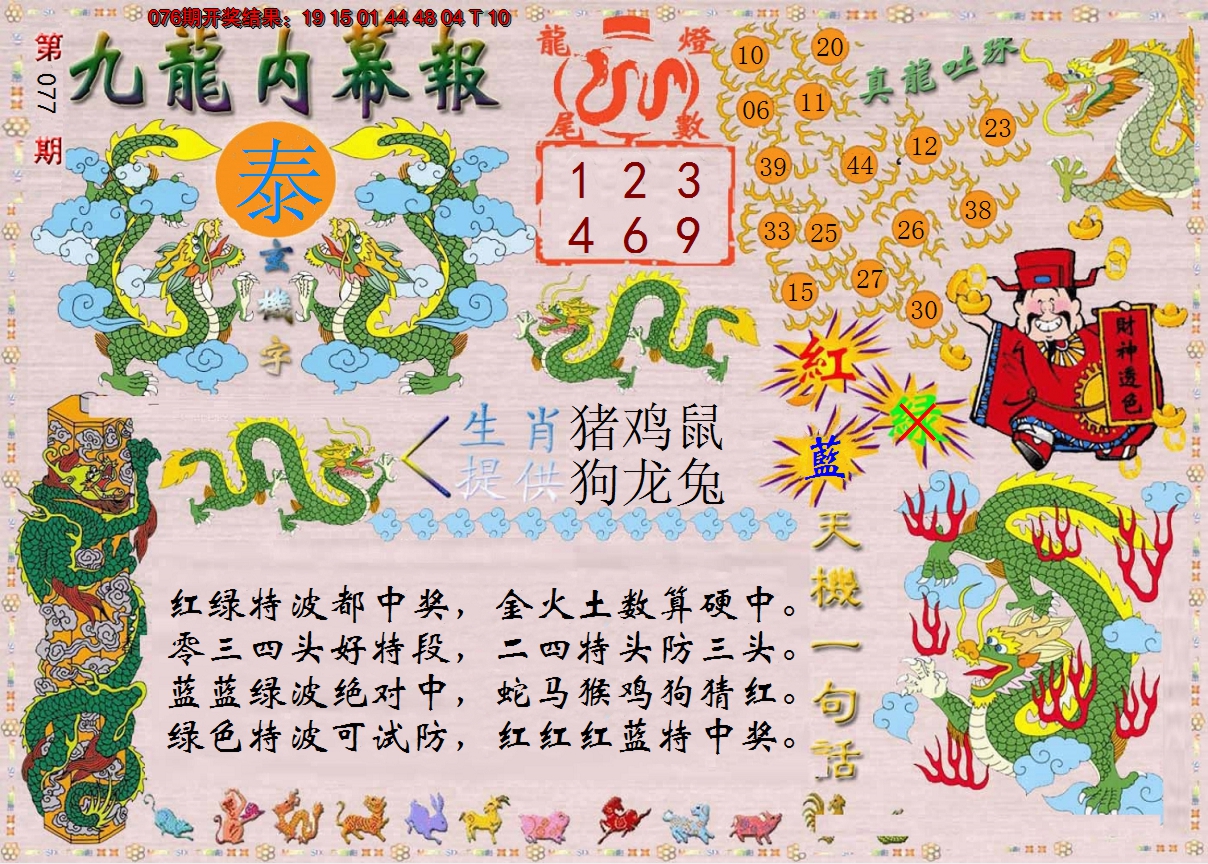 076期开奖结果：19 15 01 44 48 04 T 10
第077期
九龍内幕報
泰
玄機字
龍燈尾數
1 2 3
4 6 9
真龍吐珠
10 20
06 11
39 44 12 23
33 25 26 38
15 27 30
紅
绿
藍
財神透色
生肖提供
猪鸡鼠
狗龙兔
天機一句話
红绿特波都中奖，金火土数算硬中。
零三四头好特段，二四特头防三头。
蓝蓝绿波绝对中，蛇马猴鸡狗猜红。
绿色特波可试防，红红红蓝特中奖。